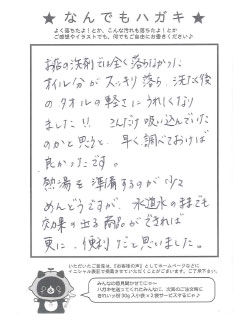 ★なんでもハガキ★
よく落ちたよ！とか、こんな汚れも落ちたよ！とか
ご感想やイラストでも、何でもご自由にお書きください♪
お店の洗剤では全く落ちなかった
オイル分がスッキリ落ち、洗たく後
のタオルの軽さにうれしくなり
ました!! こんだけ吸い込んでいた
のかと思うと、早く調べておけば
良かったです。
熱湯を準備するのが少々
めんどうですが、水道水のままでも
効果の出る商品ができれば
更に、便利だと思いました。
いただいたご意見は、『お客様の声』としてホームページなどに
イニシャル表記で掲載させていただくことがございます。ご了承下さい。
みんなの意見聞かせてにゃ〜